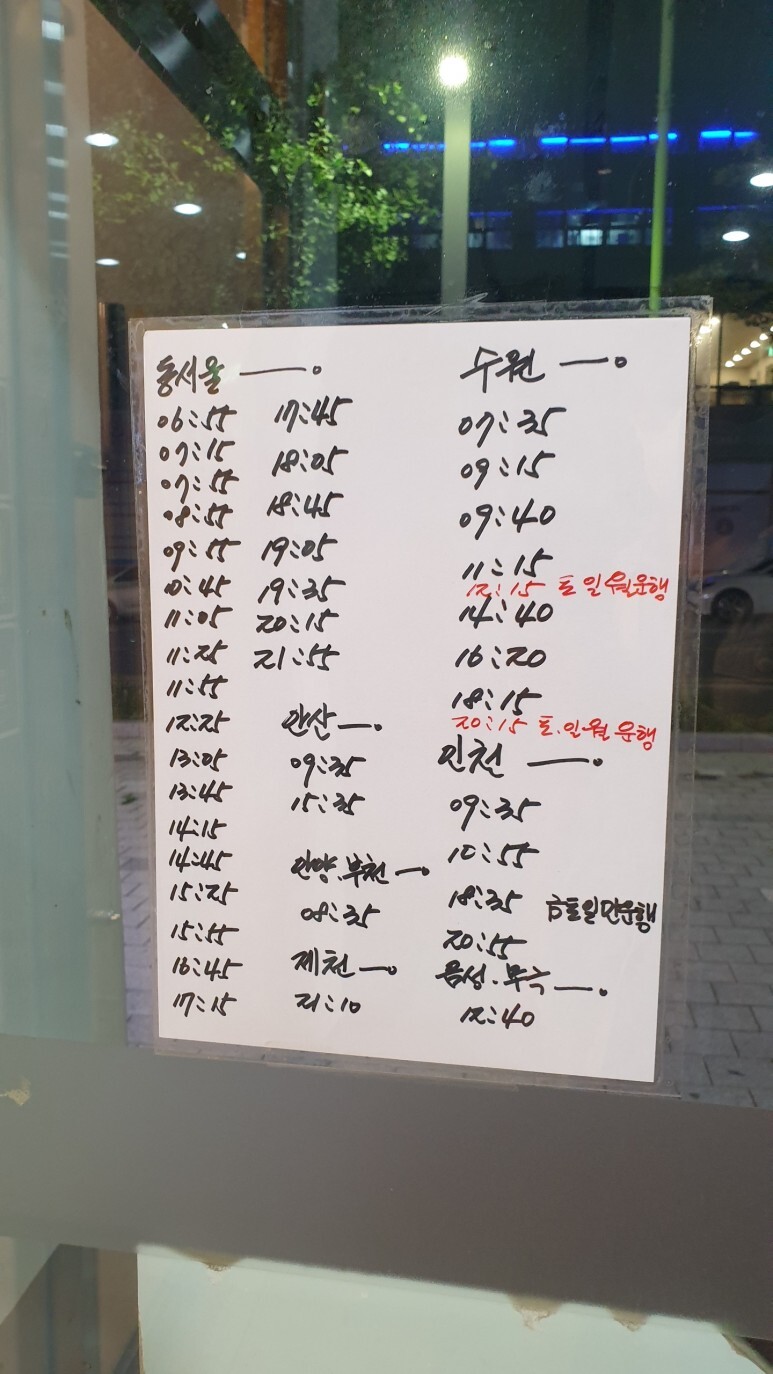 동서울
06:55
07:15
07:55
08:55
09:55
10:45
11:05
11:25
11:55
12:25
13:05
13:45
14:15
14:45
15:25
15:55
16:45
17:15
17:45
18:05
18:45
19:05
19:35
20:15
21:55
안산
09:35
15:35
안양.부천
08:35
제천
21:10
수원
07:35
09:15
09:40
11:15
12:15 토일월운행
14:40
16:20
18:15
20:15 토.일월운행
인천
09:35
10:55
18:35 금토일만운행
20:55
음성.무극
12:40